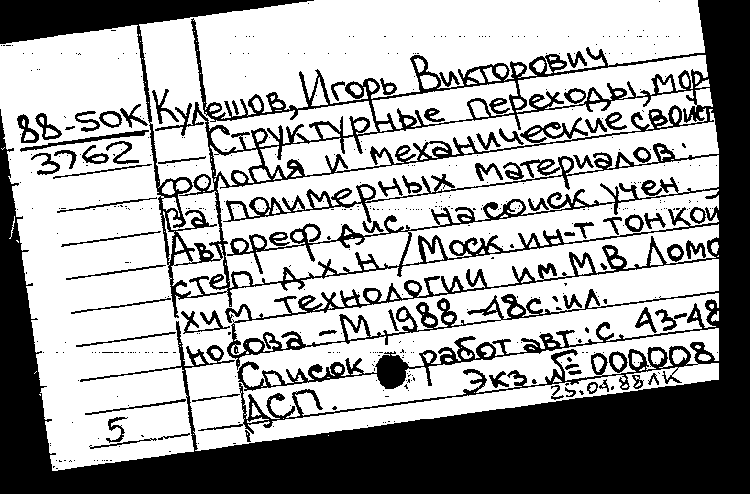 88-50К
3762
Кулешов, Игорь Викторович
Структурные переходы, мор-
фология и механические свойст
ва полимерных материалов:
Автореф. дис. на соиск. учен.
степ. д.х.н. / Моск. ин-т тонкой
хим. технологии им. М.В. Ломо
носова. -М., 1988. -48с.: ил.
Список работ авт.: с. 43-48
ДСП. Экз. № 000008
25.04.88 ЛК
5